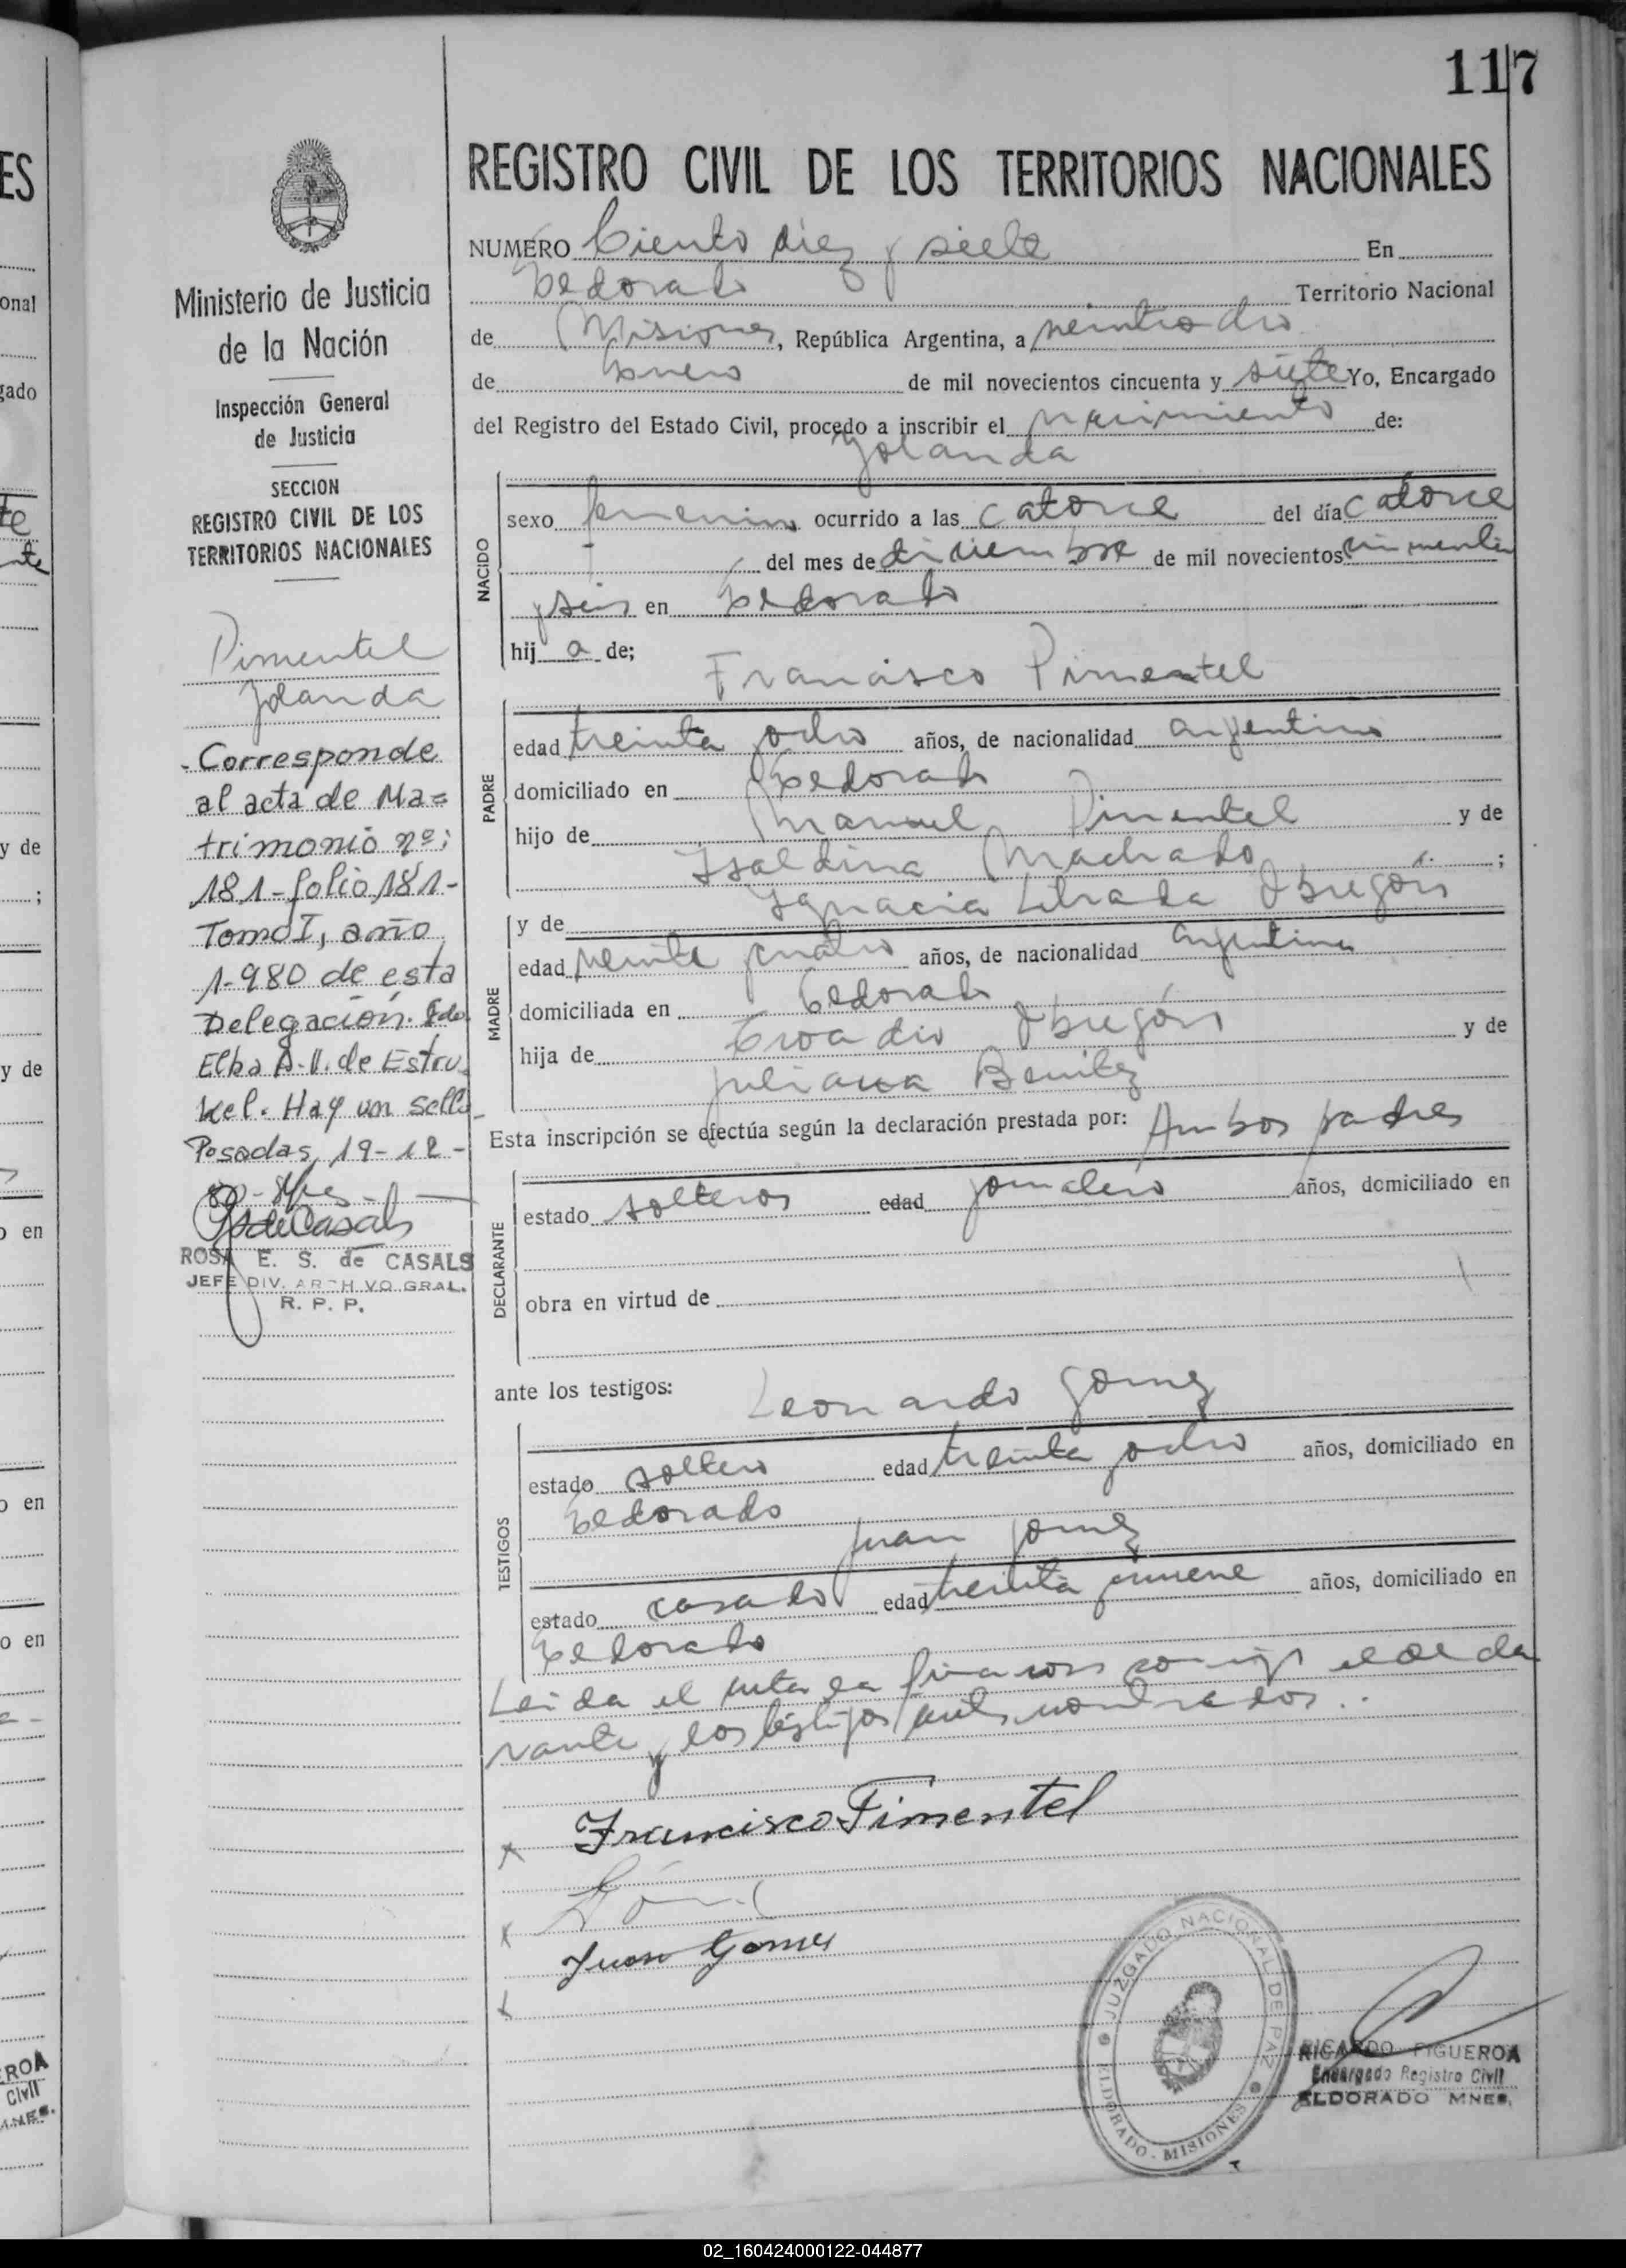 117
REGISTRO CIVIL DE LOS TERRITORIOS NACIONALES
NUMERO Ciento diez y siete En
Eldorado Territorio Nacional
de Misiones, República Argentina, a veintiocho
de Enero de mil novecientos cincuenta y siete Yo, Encargado
del Registro del Estado Civil, procedo a inscribir el nacimiento de:
Yolanda
NACIDO
sexo femenino ocurrido a las catorce del día catorce
del mes de diciembre de mil novecientos cincuenta
y seis en Eldorado
hij a de;
Francisco Pimentel
PADRE
edad treinta y ocho años, de nacionalidad argentino
domiciliado en Eldorado
hijo de Manuel Pimentel y de
Isaldina Machado ;
y de Ignacia Librada Obregón
MADRE
edad veinte y cuatro años, de nacionalidad argentina
domiciliada en Eldorado
hija de Eroadio Obregón y de
Juliana Benitez
Esta inscripción se efectúa según la declaración prestada por: Ambos padres
DECLARANTE
estado solteros edad jornalero años, domiciliado en
obra en virtud de
ante los testigos:
Leonardo Gomez
TESTIGOS
estado soltero edad treinta y ocho años, domiciliado en
Eldorado
Juan Gomez
estado casado edad treinta y nueve años, domiciliado en
Eldorado
Leida el acta la firman conmigo el decla
rante y los testigos antes nombrados..
Francisco Pimentel
Juan Gomez
JUZGADO NACIONAL DE PAZ
ELDORADO - MISIONES
RICARDO FIGUEROA
Encargado Registro Civil
ELDORADO MNES.
Ministerio de Justicia
de la Nación
Inspección General
de Justicia
SECCION
REGISTRO CIVIL DE LOS
TERRITORIOS NACIONALES
Pimentel
Yolanda
- Corresponde
al acta de Ma=
trimonio nº:
181-folio 181-
Tomo I, año
1.980 de esta
Delegación. Fdo.
Elba A.V. de Estru_
kel. Hay un sello_
Posadas, 19-12-
80-
ROSA E. S. de CASALS
JEFE DIV. ARCHIVO GRAL.
R. P. P.
ES
onal
gado
te
nte
y de
;
y de
o en
o en
o en
EROA
Civil
MNES.
02_160424000122-044877